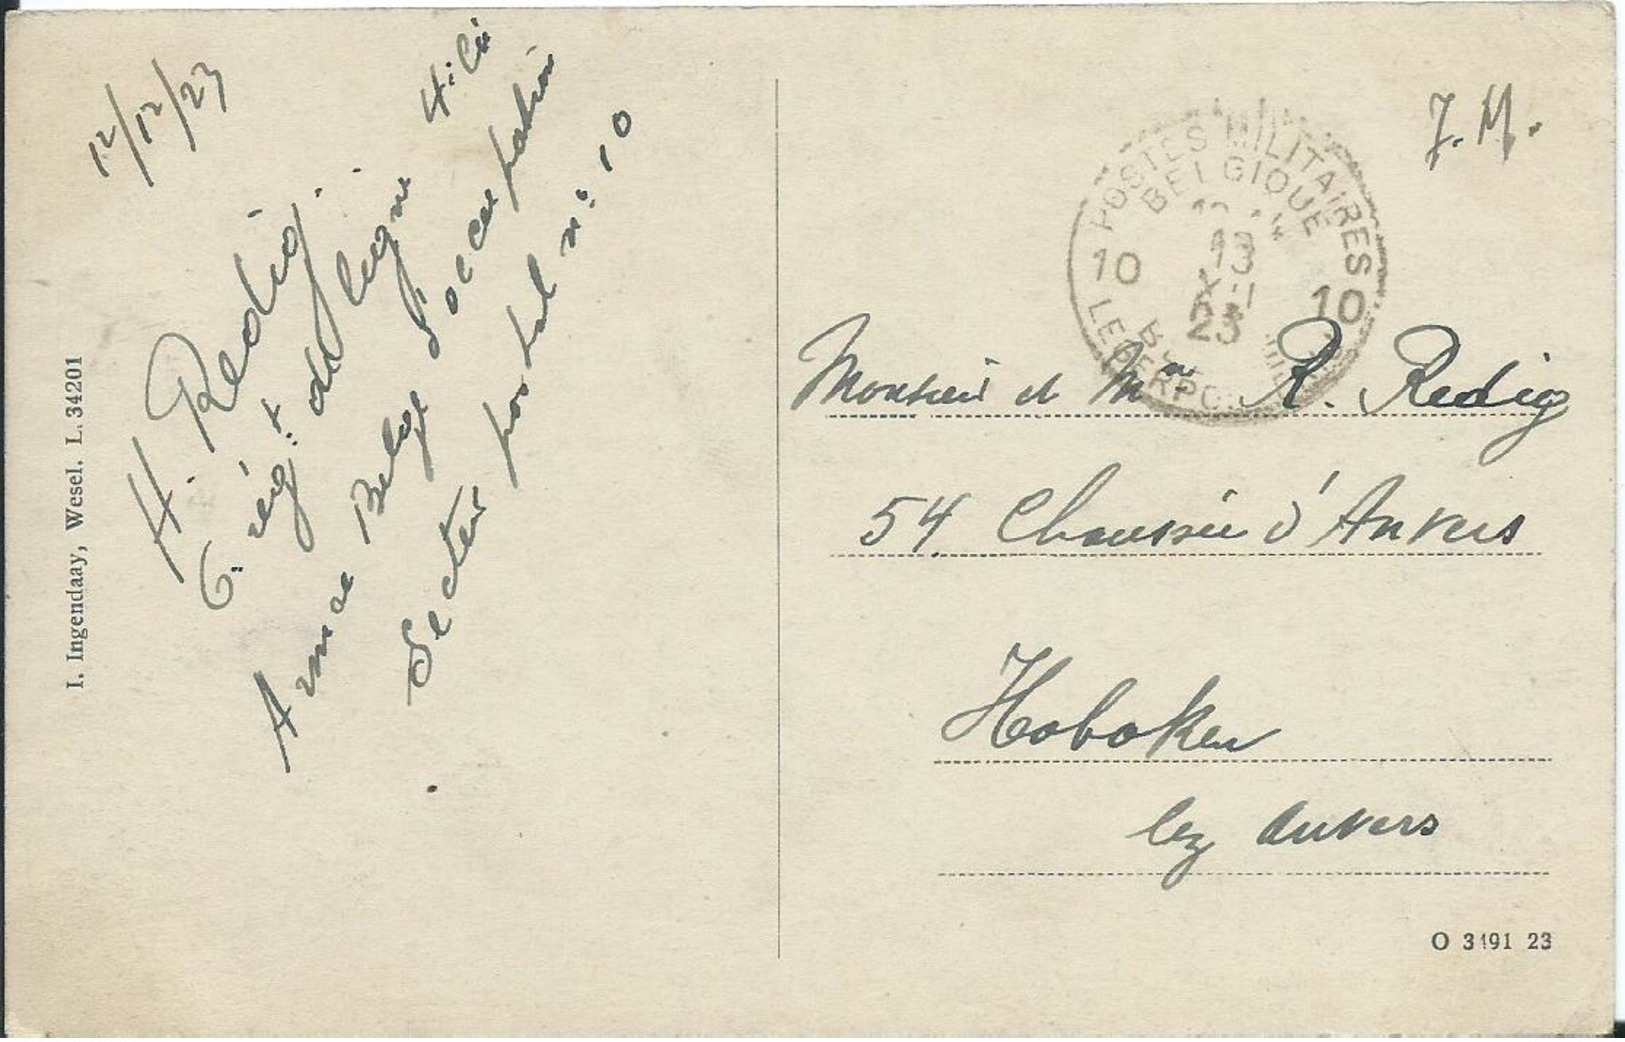 12/12/23
H. Redig.
6.e rég.t de ligne 4.Cie
Armée Belge d'occupation
Secteur postal n.o 10
I. Ingendaay, Wesel. L. 34201
F.M.
POSTES MILITAIRES
BELGIQUE
10 13 10
XII
23
LEGERPO
Monsieur et Mme R. Redig
54 Chaussée d'Anvers
Hoboken
lez Anvers
O 3491 23